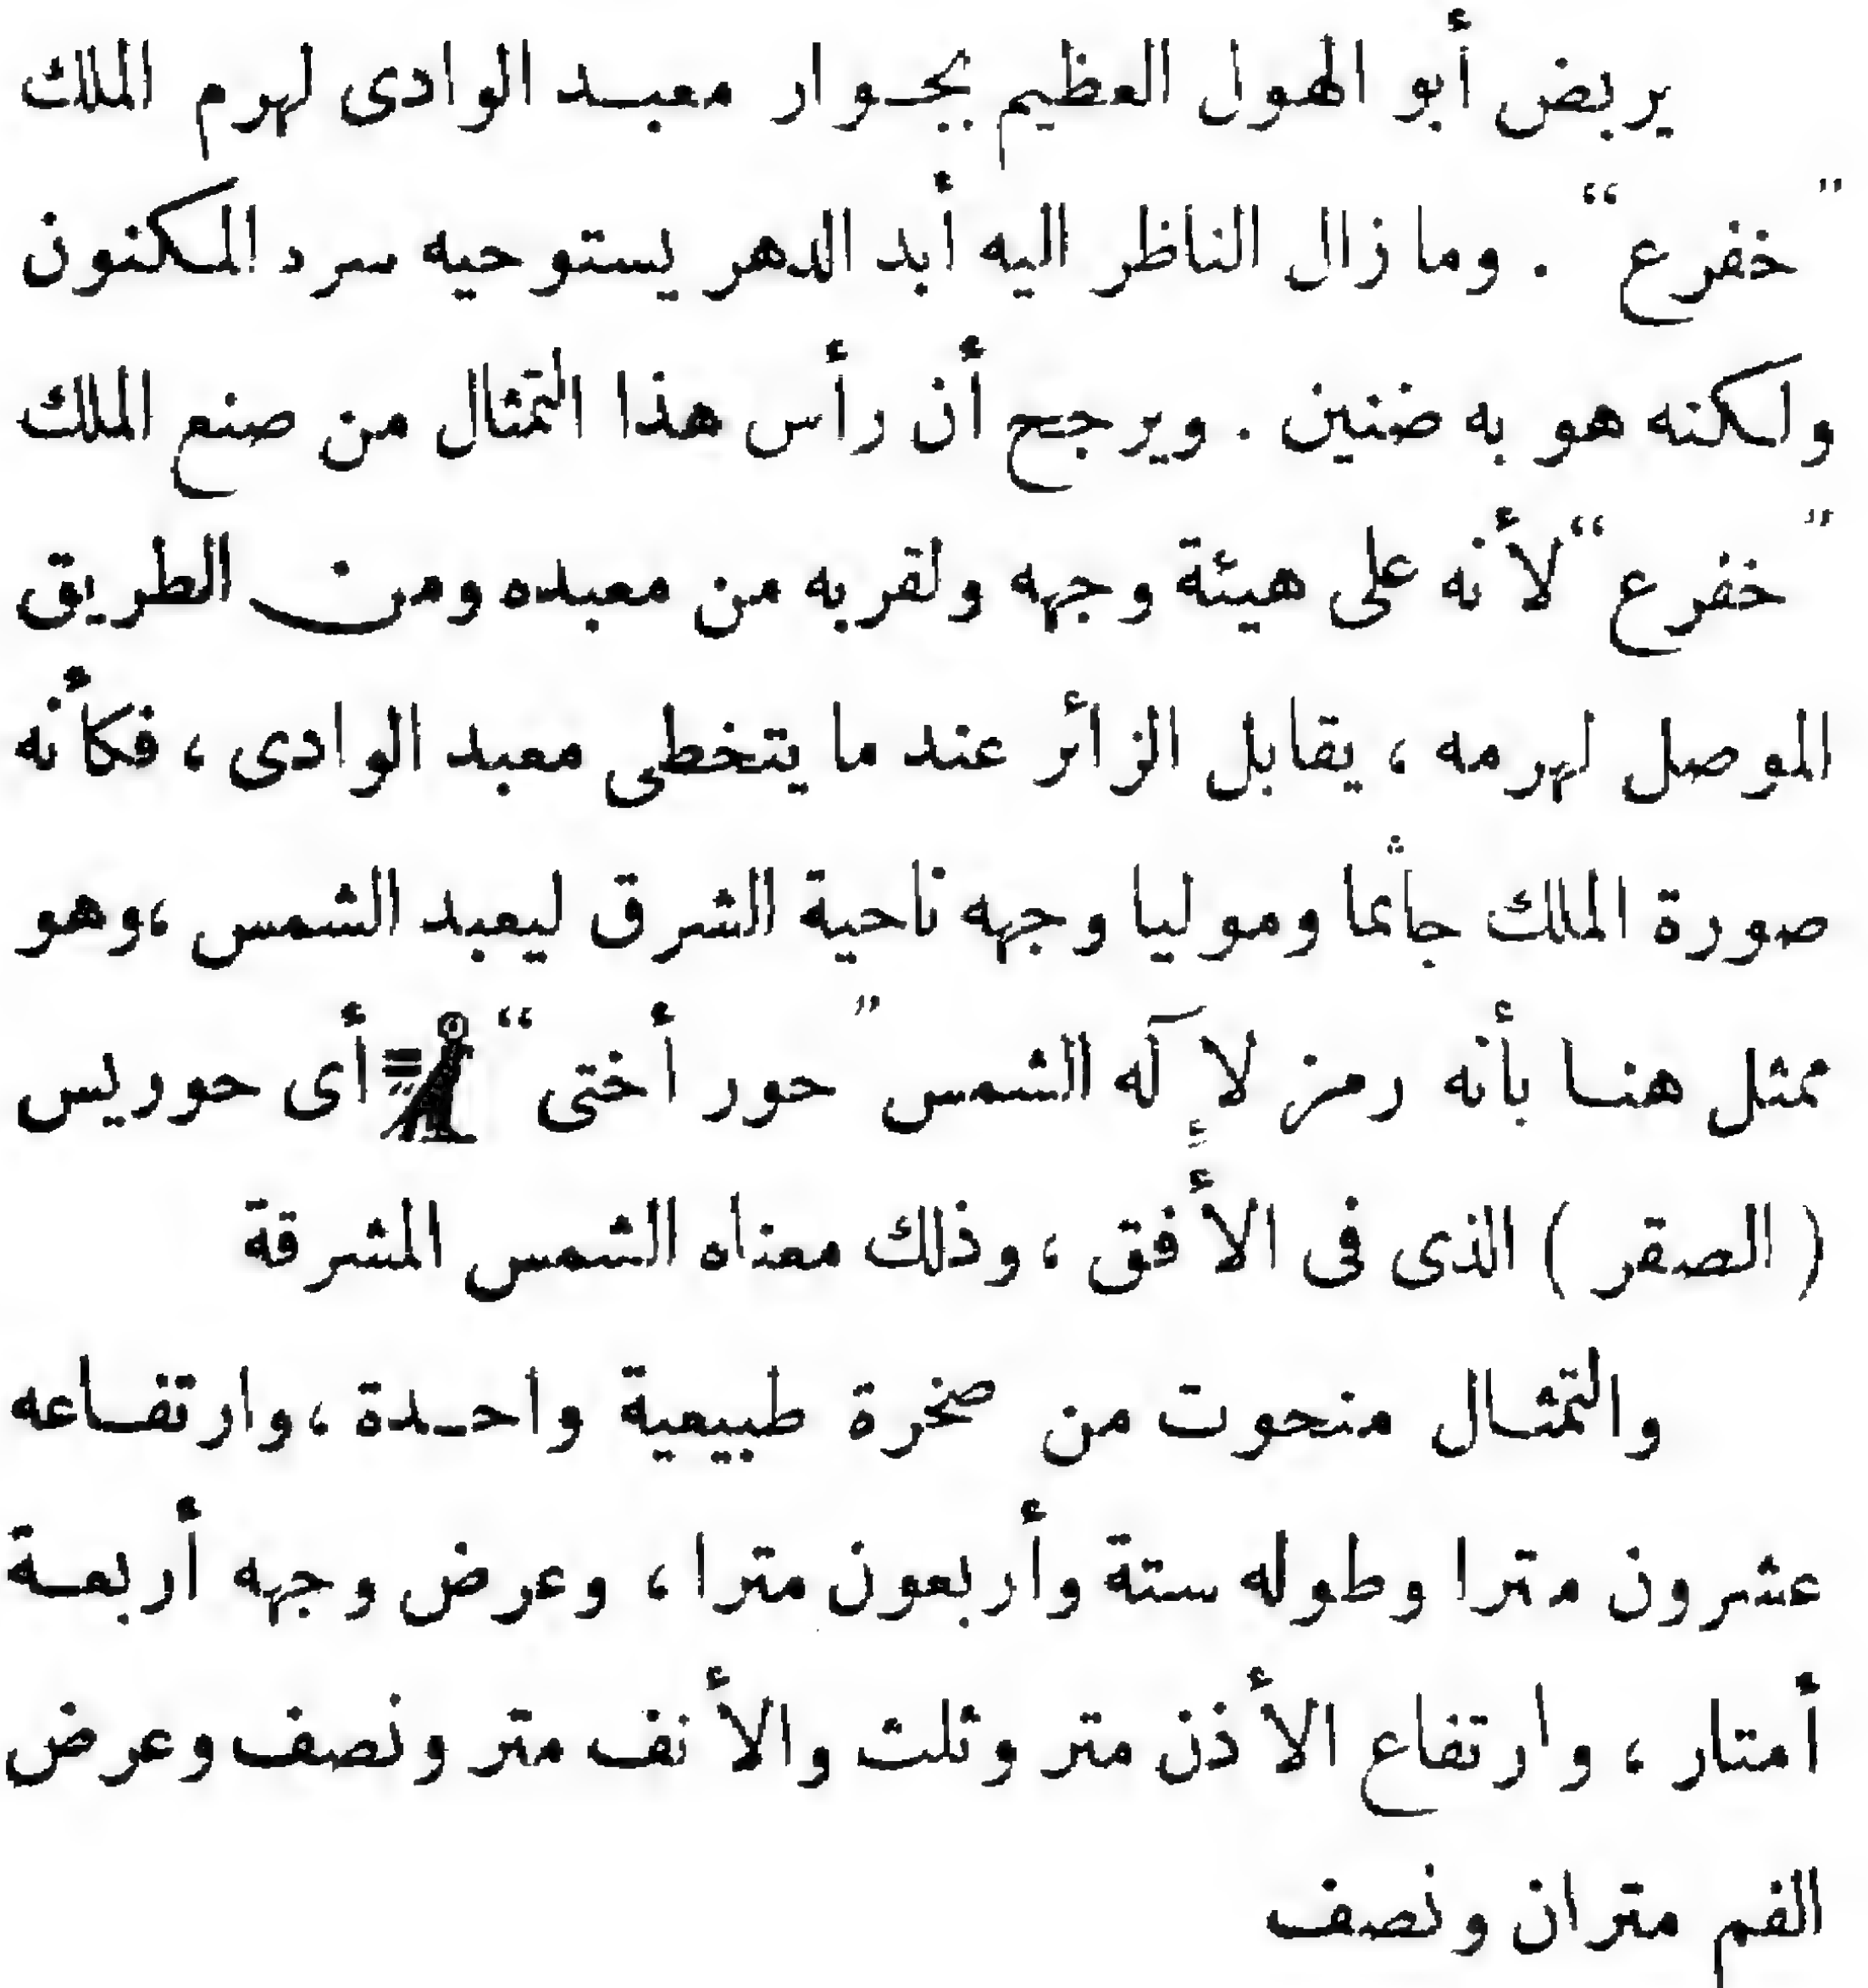 يربض أبو الهول العظيم بجوار معبد الوادى لهرم الملك
"خفرع". وما زال الناظر اليه أبد الدهر يستوحيه سره المكنون
ولكنه هو به ضنين. ويرجح أن رأس هذا التمثال من صنع الملك
"خفرع" لأنه على هيئة وجهه ولقربه من معبده ومن الطريق
الموصل لهرمه، يقابل الزائر عند ما يتخطى معبد الوادى، فكأنه
صورة الملك جاثما وموليا وجهه ناحية الشرق ليعبد الشمس، وهو
ممثل هنا بأنه رمز لإله الشمس "حور أختى" أى حوريس
(الصقر) الذى فى الأفق، وذلك معناه الشمس المشرقة
والتمثال منحوت من صخرة طبيعية واحدة، وارتفاعه
عشرون مترا وطوله ستة وأربعون مترا، وعرض وجهه أربعة
أمتار، وارتفاع الأذن متر وثلث والأنف متر ونصف وعرض
الفم متران ونصف